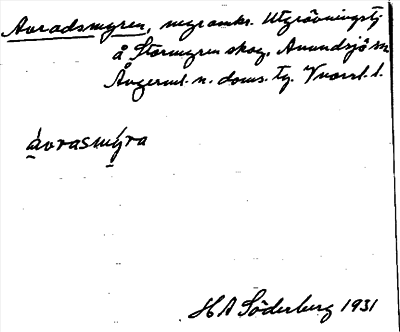 Avradsmyren, myromkr. Utgrävningstj
å Stormyren skog, Anundsjö sn
Ångerml. n. doms. tg. Vnorrl. l.
ávrasmýra
H A Söderberg 1931